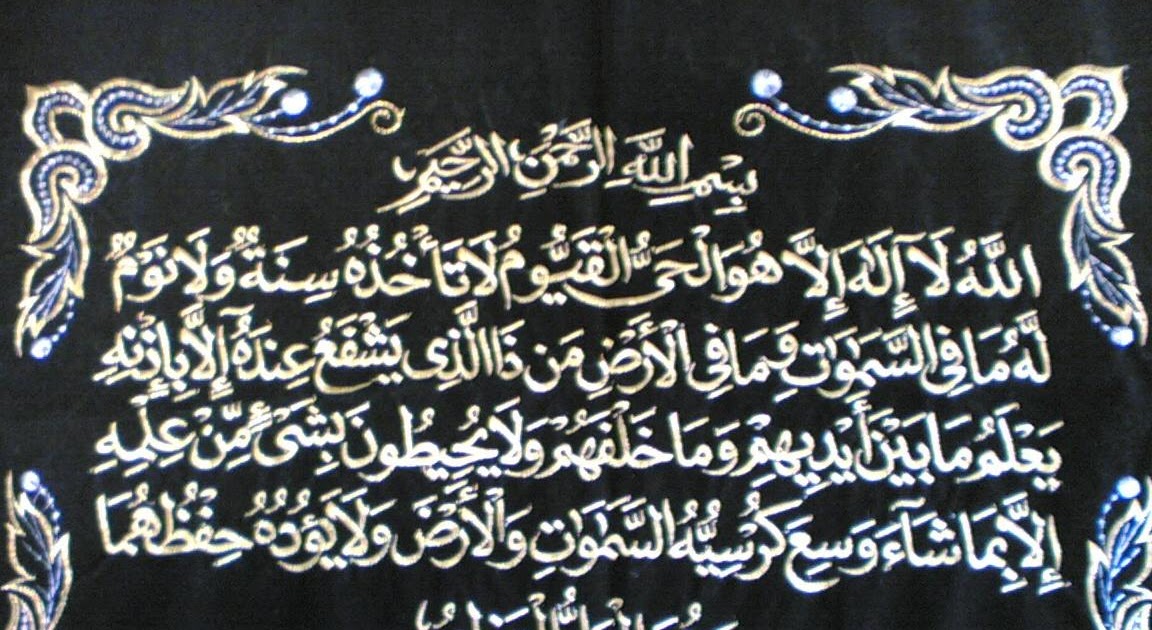 بِسْمِ اللَّهِ الرَّحْمَنِ الرَّحِيمِ
اللَّهُ لَا إِلَٰهَ إِلَّا هُوَ الْحَىُّ الْقَيُّومُ لَا تَأْخُذُهُ سِنَةٌ وَلَا نَوْمٌ
لَّهُ مَا فِى السَّمَٰوَٰتِ وَمَا فِى الْأَرْضِ مَن ذَا الَّذِى يَشْفَعُ عِندَهُٓ إِلَّا بِإِذْنِهِ
يَعْلَمُ مَا بَيْنَ أَيْدِيهِمْ وَمَا خَلْفَهُمْ وَلَا يُحِيطُونَ بِشَىْءٍ مِّنْ عِلْمِهِ
إِلَّا بِمَا شَآءَ وَسِعَ كُرْسِيُّهُ السَّمَٰوَٰتِ وَالْأَرْضَ وَلَا يَؤُدُهُ حِفْظُهُمَا